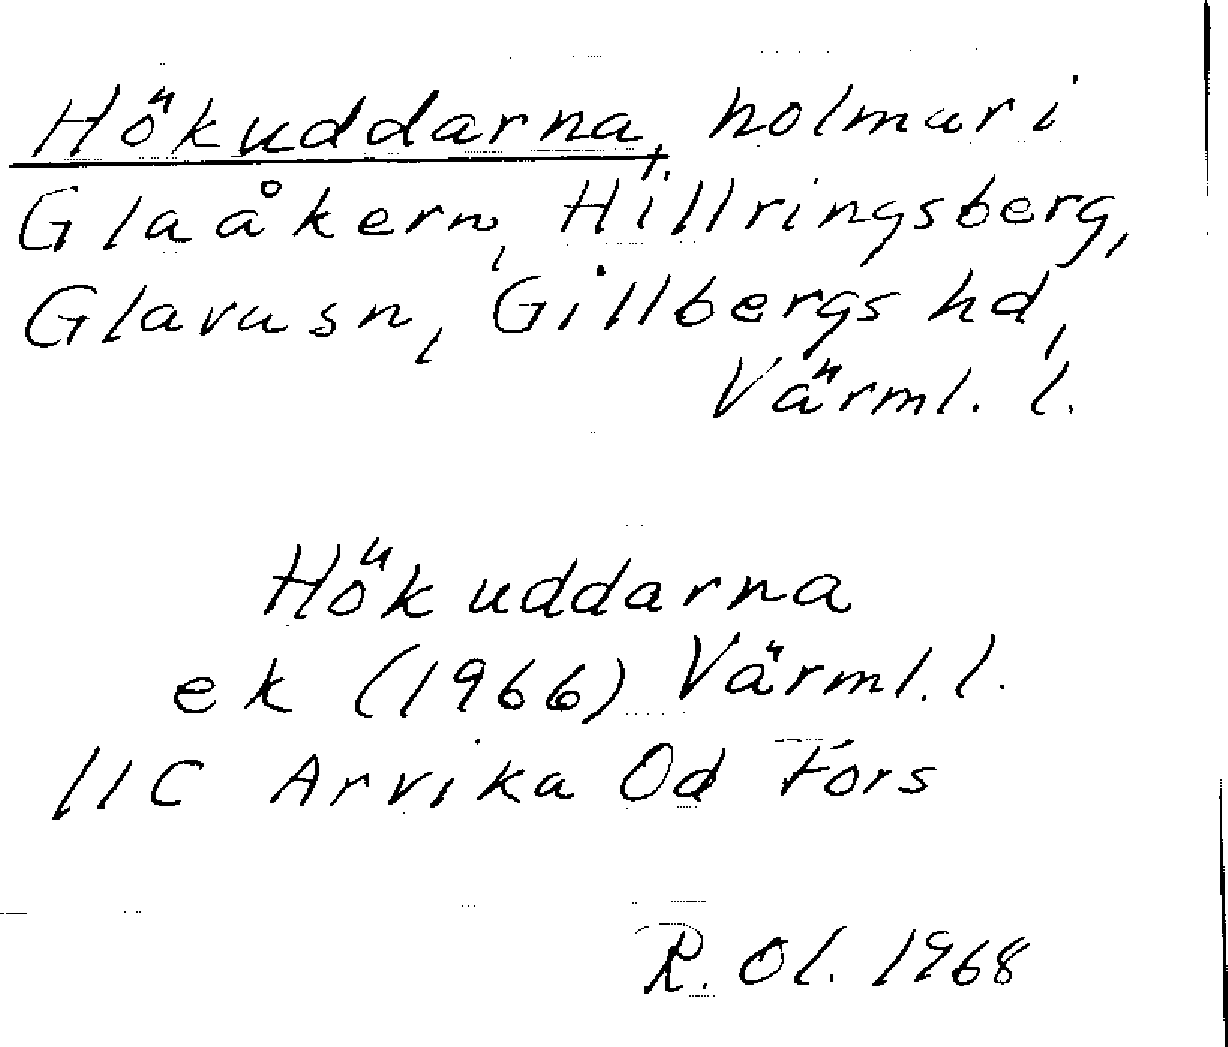 Hökuddarna, holmar i
Glaåkern, Hillringsberg,
Glavasn, Gillbergs hd,
Värml. l.
Hökuddarna
ek (1966) Värml. l.
11C Arvika Od Fors
R. Ol. 1968